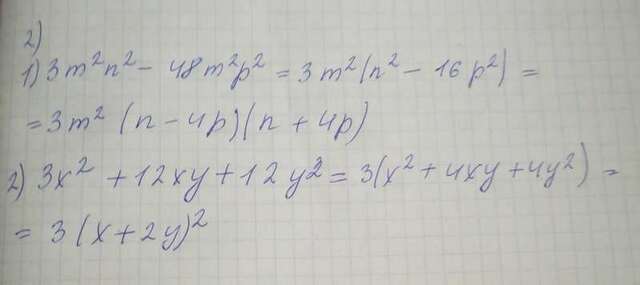 2)
1) 3m²n² - 48m²p² = 3m²(n² - 16p²) =
= 3m² (n - 4p)(n + 4p)
2) 3x² + 12xy + 12y² = 3(x² + 4xy + 4y²) =
= 3(x + 2y)²